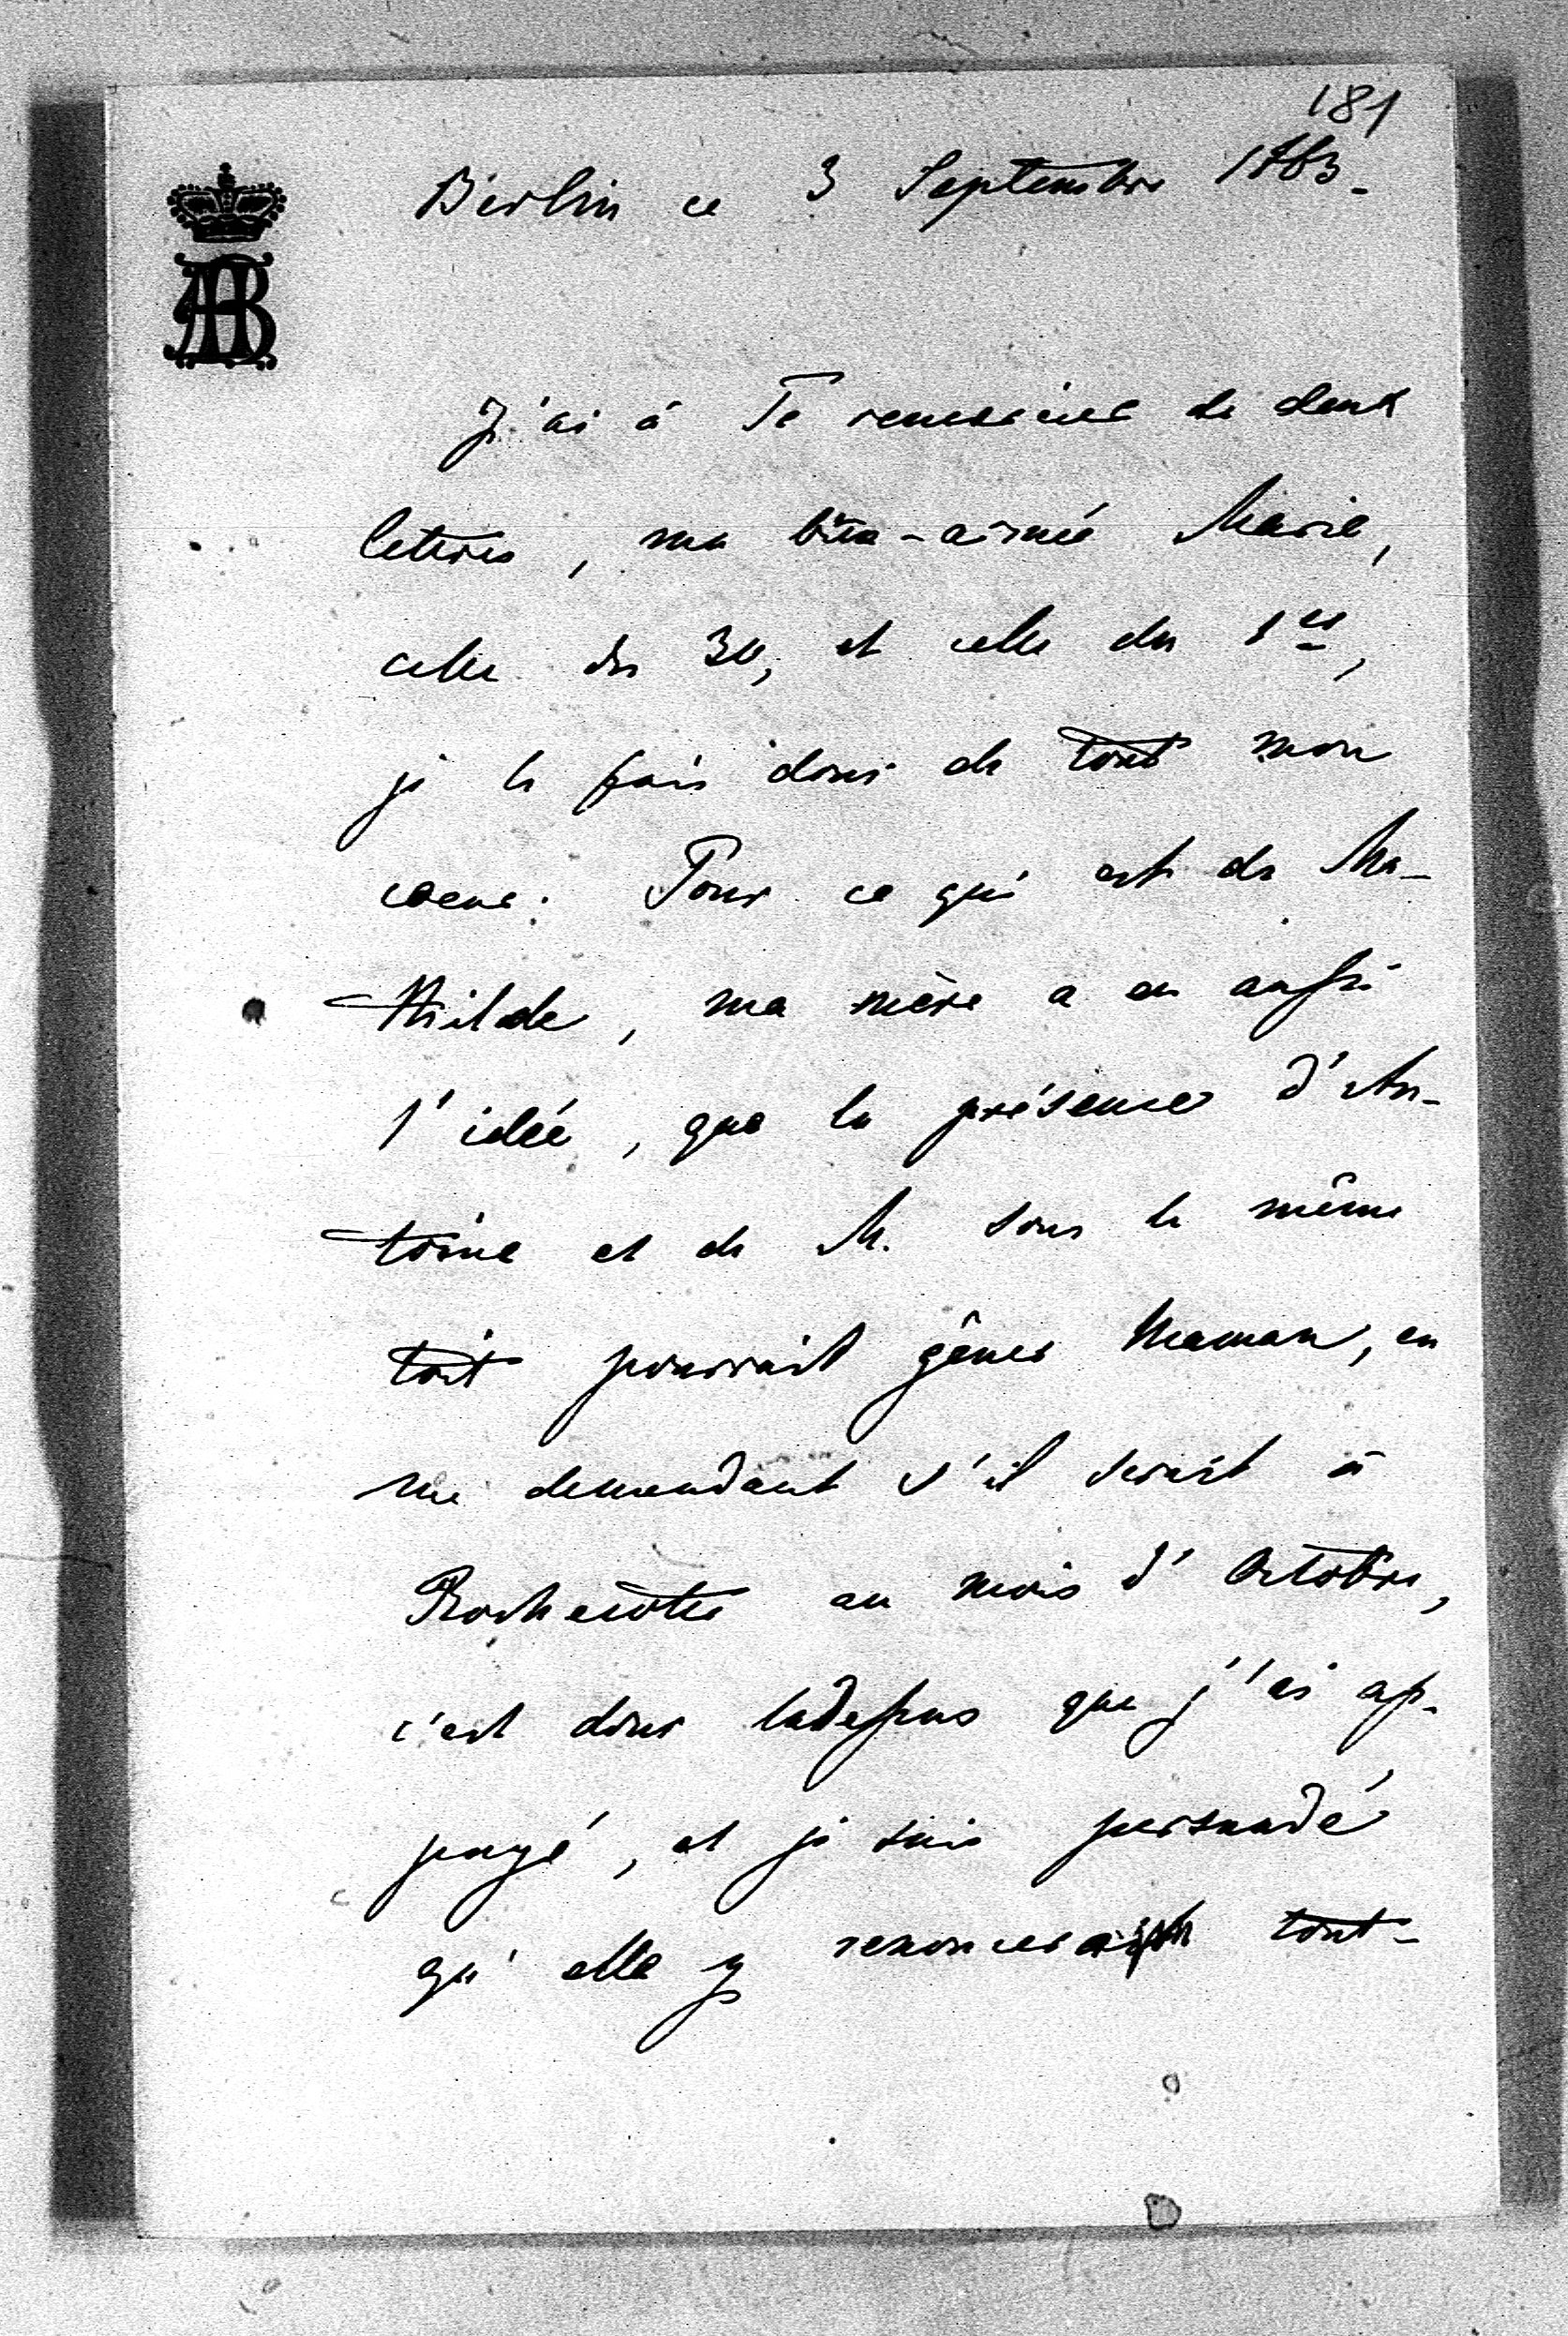 181
Berlin ce 3 Septembre 1863.
J'ai à Te remercier de deux
lettres, ma bien-aimée Marie,
celle du 30, et celle du 1er,
je le fais donc de tout mon
coeur. Pour ce qui est de Ma-
thilde, ma mère a eu aussi
l'idée, que la présence d'An-
toine et de M. sous le même
toit pourrait gêner Maman, en
me demandant s'il serait à
Rochecotte au mois d'Octobre,
c'est donc ladessus que j'ai ap-
puyé, et je suis persuadé
qu'elle y renoncera tout-